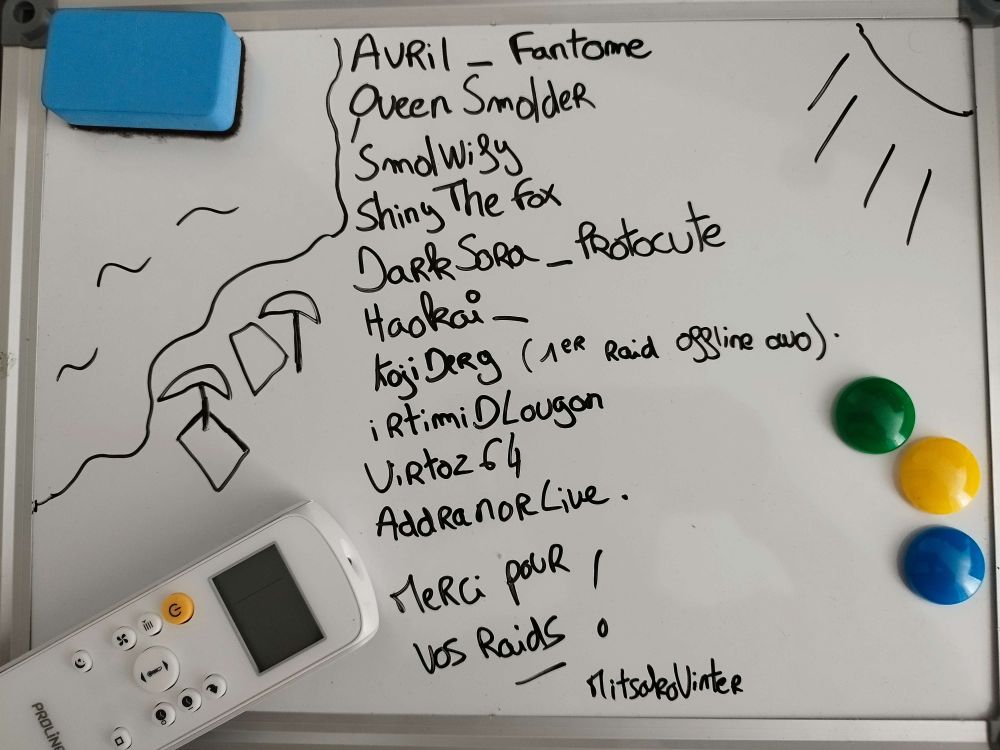 Avril_Fantome
Queen Smolder
SmolWify
Shiny The Fox
DarkSora_Protocute
Haokai_
KojiDerg (1er Raid offline owo).
iRtimiDLougon
Virtoz64
AddranorLive.
Merci pour
vos Raids !
MitsakoVinter
PROLINE